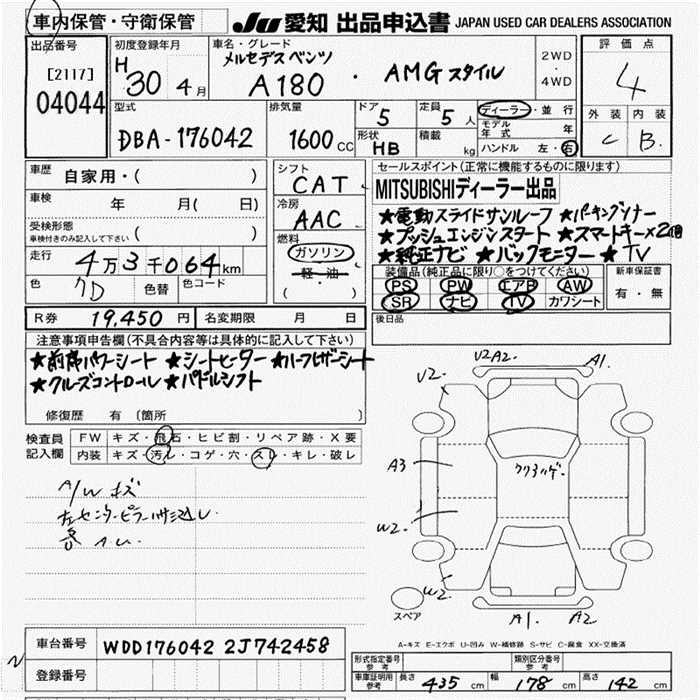 車内保管・守衛保管
JU 愛知 出品申込書 JAPAN USED CAR DEALERS ASSOCIATION
出品番号
[2117]
04044
初度登録年月
H 30 4月
車名・グレード
メルセデス ベンツ
A180 ・ AMG スタイル
2WD
・
4WD
評価点
4
外装 内装
C B
型式
DBA-176042
排気量
1600 CC
ドア 5
形状 HB
定員 5 人
積載 kg
ディーラー・並行
モデル年式 年
ハンドル 左・右
車歴 自家用・( )
車検 年 月( 日)
受検形態
車検付きのみ記入して下さい ( )
走行 4万3千064km
色 クロ 色替 色コード
シフト
CAT
冷房
AAC
燃料
ガソリン
・軽・油・
( )
セールスポイント(正常に機能するものに限ります)
MITSUBISHIディーラー出品
★電動スライドサンルーフ ★パーキングソナー
★プッシュエンジンスタート ★スマートキー×2個
★純正ナビ ★バックモニター ★TV
装備品(純正品に限り○をつけてください)
PS PW エアB AW
SR ナビ TV カワシート
新車保証書
有・無
R券 19,450 円 名変期限 月 日
後日品
注意事項申告欄(不具合内容等は具体的に記入して下さい)
★前席パワーシート ★シートヒーター ★ハーフレザーシート
★クルーズコントロール ★パドルシフト
修復歴 有 (箇所 )
検査員記入欄
FW キズ・飛石・ヒビ割・リペア跡・X要
内装 キズ・汚レ・コゲ・穴・スレ・キレ・破レ
A/W キズ
左センターピラー
V2. V2 A2. A1.
A3
W2.
W2.
A1. A2
スペア
A-キズ E-エクボ U-凹み W-補修跡 S-サビ C-腐食 XX-交換済
車台番号 WDD176042 2J742458
登録番号
形式指定番号 参考
類別区分番号 参考
車庫証明用 参考 長さ 435 cm 幅 178 cm 高さ 142 cm